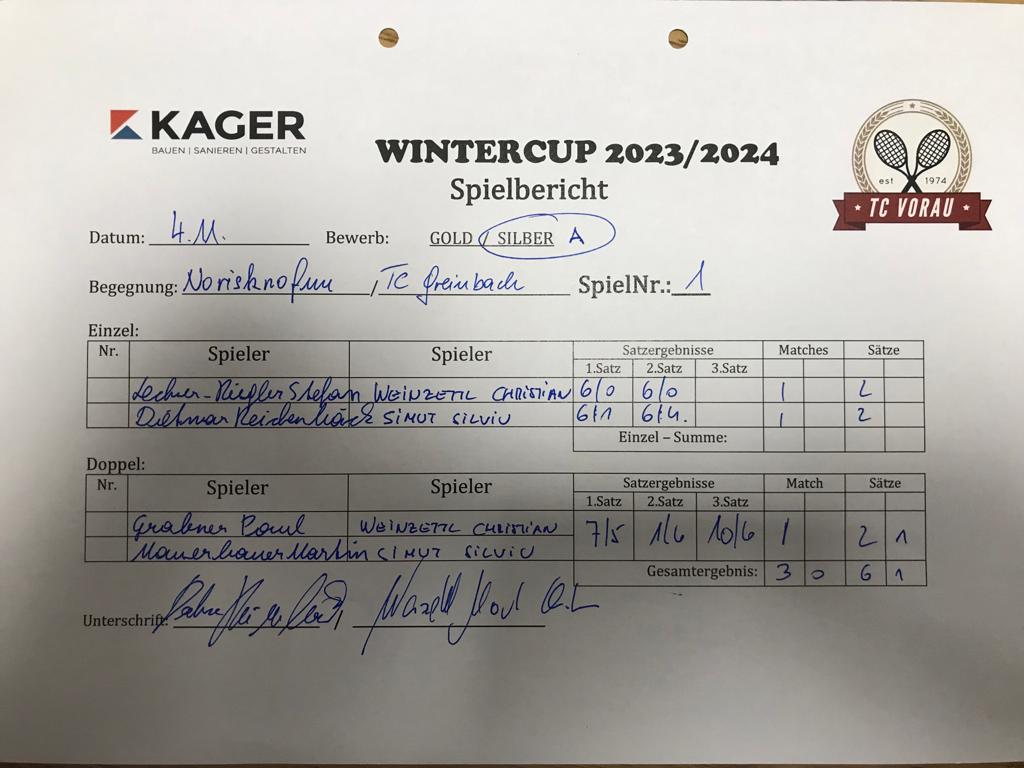 KAGER
BAUEN | SANIEREN | GESTALTEN
WINTERCUP 2023/2024
Spielbericht
est 1974
TC VORAU
Datum: 4.11. Bewerb: GOLD / SILBER A
Begegnung: Norisknofun, TC Greinbach SpielNr.: 1
Einzel:
Nr. Spieler Spieler Satzergebnisse Matches Sätze
1.Satz 2.Satz 3.Satz
Lechner-Riegler Stefan WEINZETTL CHRISTIAN 6/0 6/0 1 2
Dietmar SIMUT SILVIU 6/1 6/4. 1 2
Einzel – Summe:
Doppel:
Nr. Spieler Spieler Satzergebnisse Match Sätze
1.Satz 2.Satz 3.Satz
Grabner Paul WEINZETTL CHRISTIAN 7/5 1/6 10/6 1 2 1
Mauerbauer Martin SIMUT SILVIU
Gesamtergebnis: 3 0 6 1
Unterschrift: